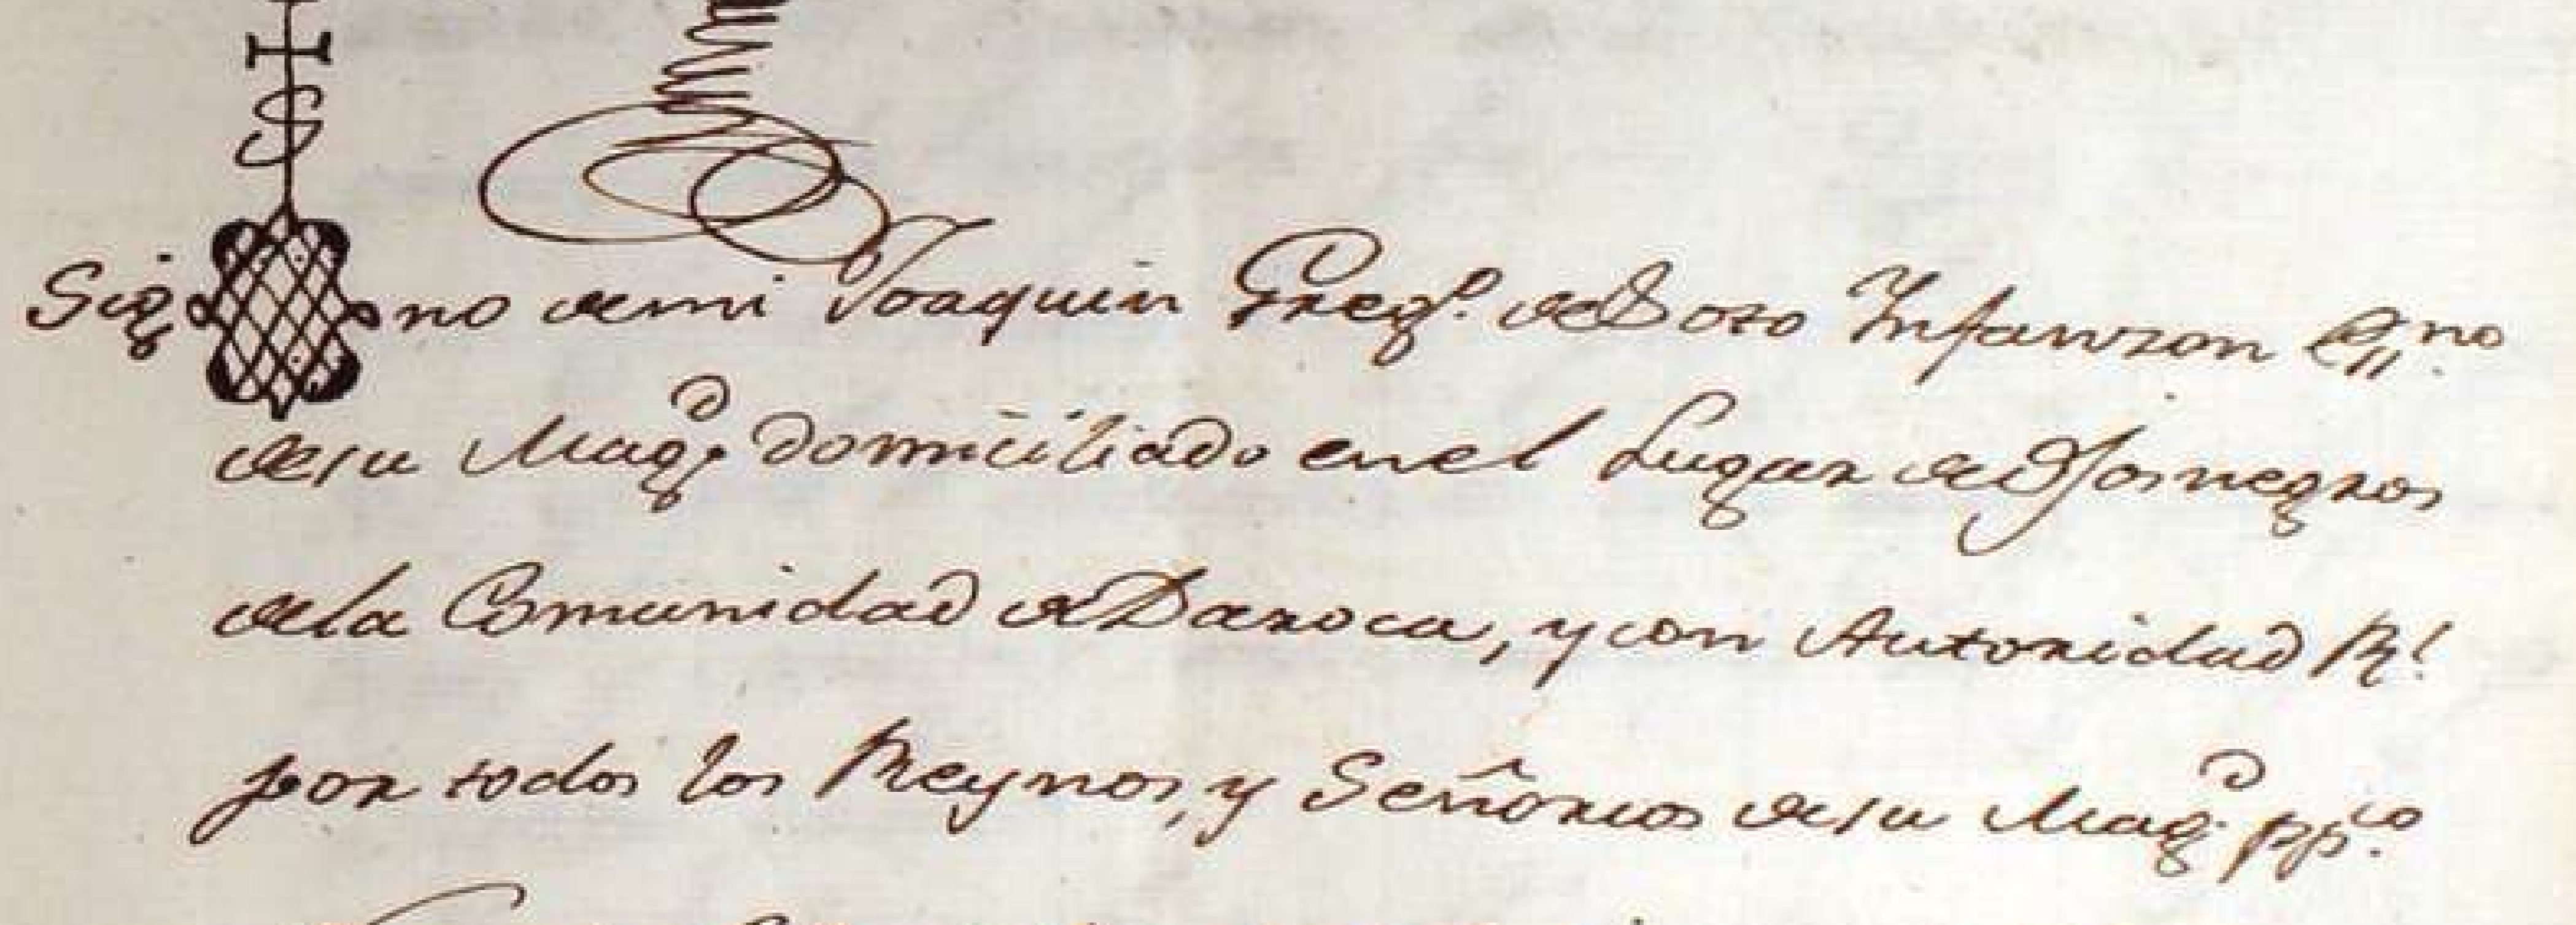 Sig no de mi Joaquin Greg.º de Soto Infanzon Ess.no
de su Mag.d domiciliado en el Lugar de Ojosnegros
de la Comunidad de Daroca, y con Autoridad Rl.
por todos los Reynos, y Señorios de su Mag.d pp.co